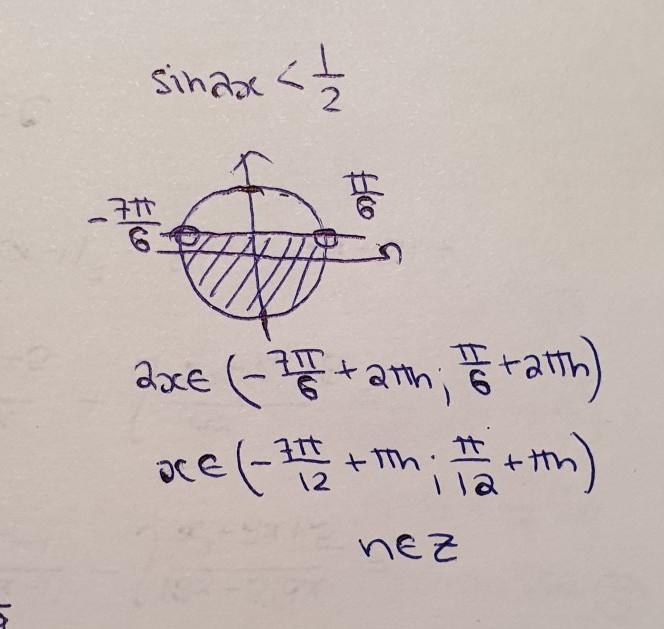 sin2x < 1/2
-7π/6 π/6
2x∈ (-7π/6 + 2πn; π/6 + 2πn)
x∈ (-7π/12 + πn; π/12 + πn)
n∈Z